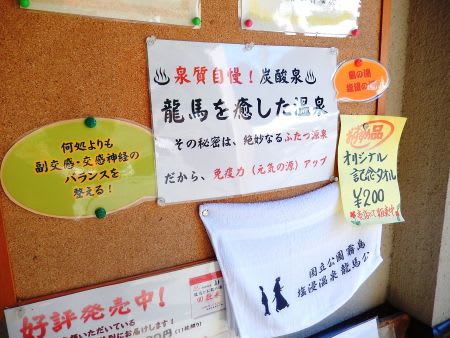 ♨泉質自慢！炭酸泉♨
龍馬を癒した温泉
その秘密は、絶妙なるふたつ源泉
だから、免疫力（元気の源）アップ
何処よりも
副交感・交感神経の
バランスを
整える！
オリジナル
記念タオル
¥200
国立公園霧島
塩浸温泉龍馬公
好評発売中！